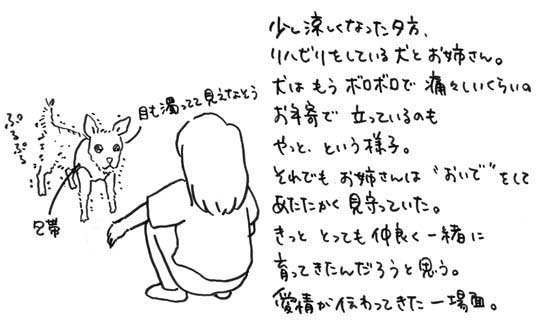 少し涼しくなった夕方、
リハビリをしている犬とお姉さん。
犬はもうボロボロで痛々しいくらいの
お年寄で立っているのも
やっと、という様子。
それでもお姉さんは"おいで"をして
あたたかく見守っていた。
きっととっても仲良く一緒に
育ってきたんだろうと思う。
愛情が伝わってきた一場面。
目も濁ってて見えなそう
ぷるぷる
包帯